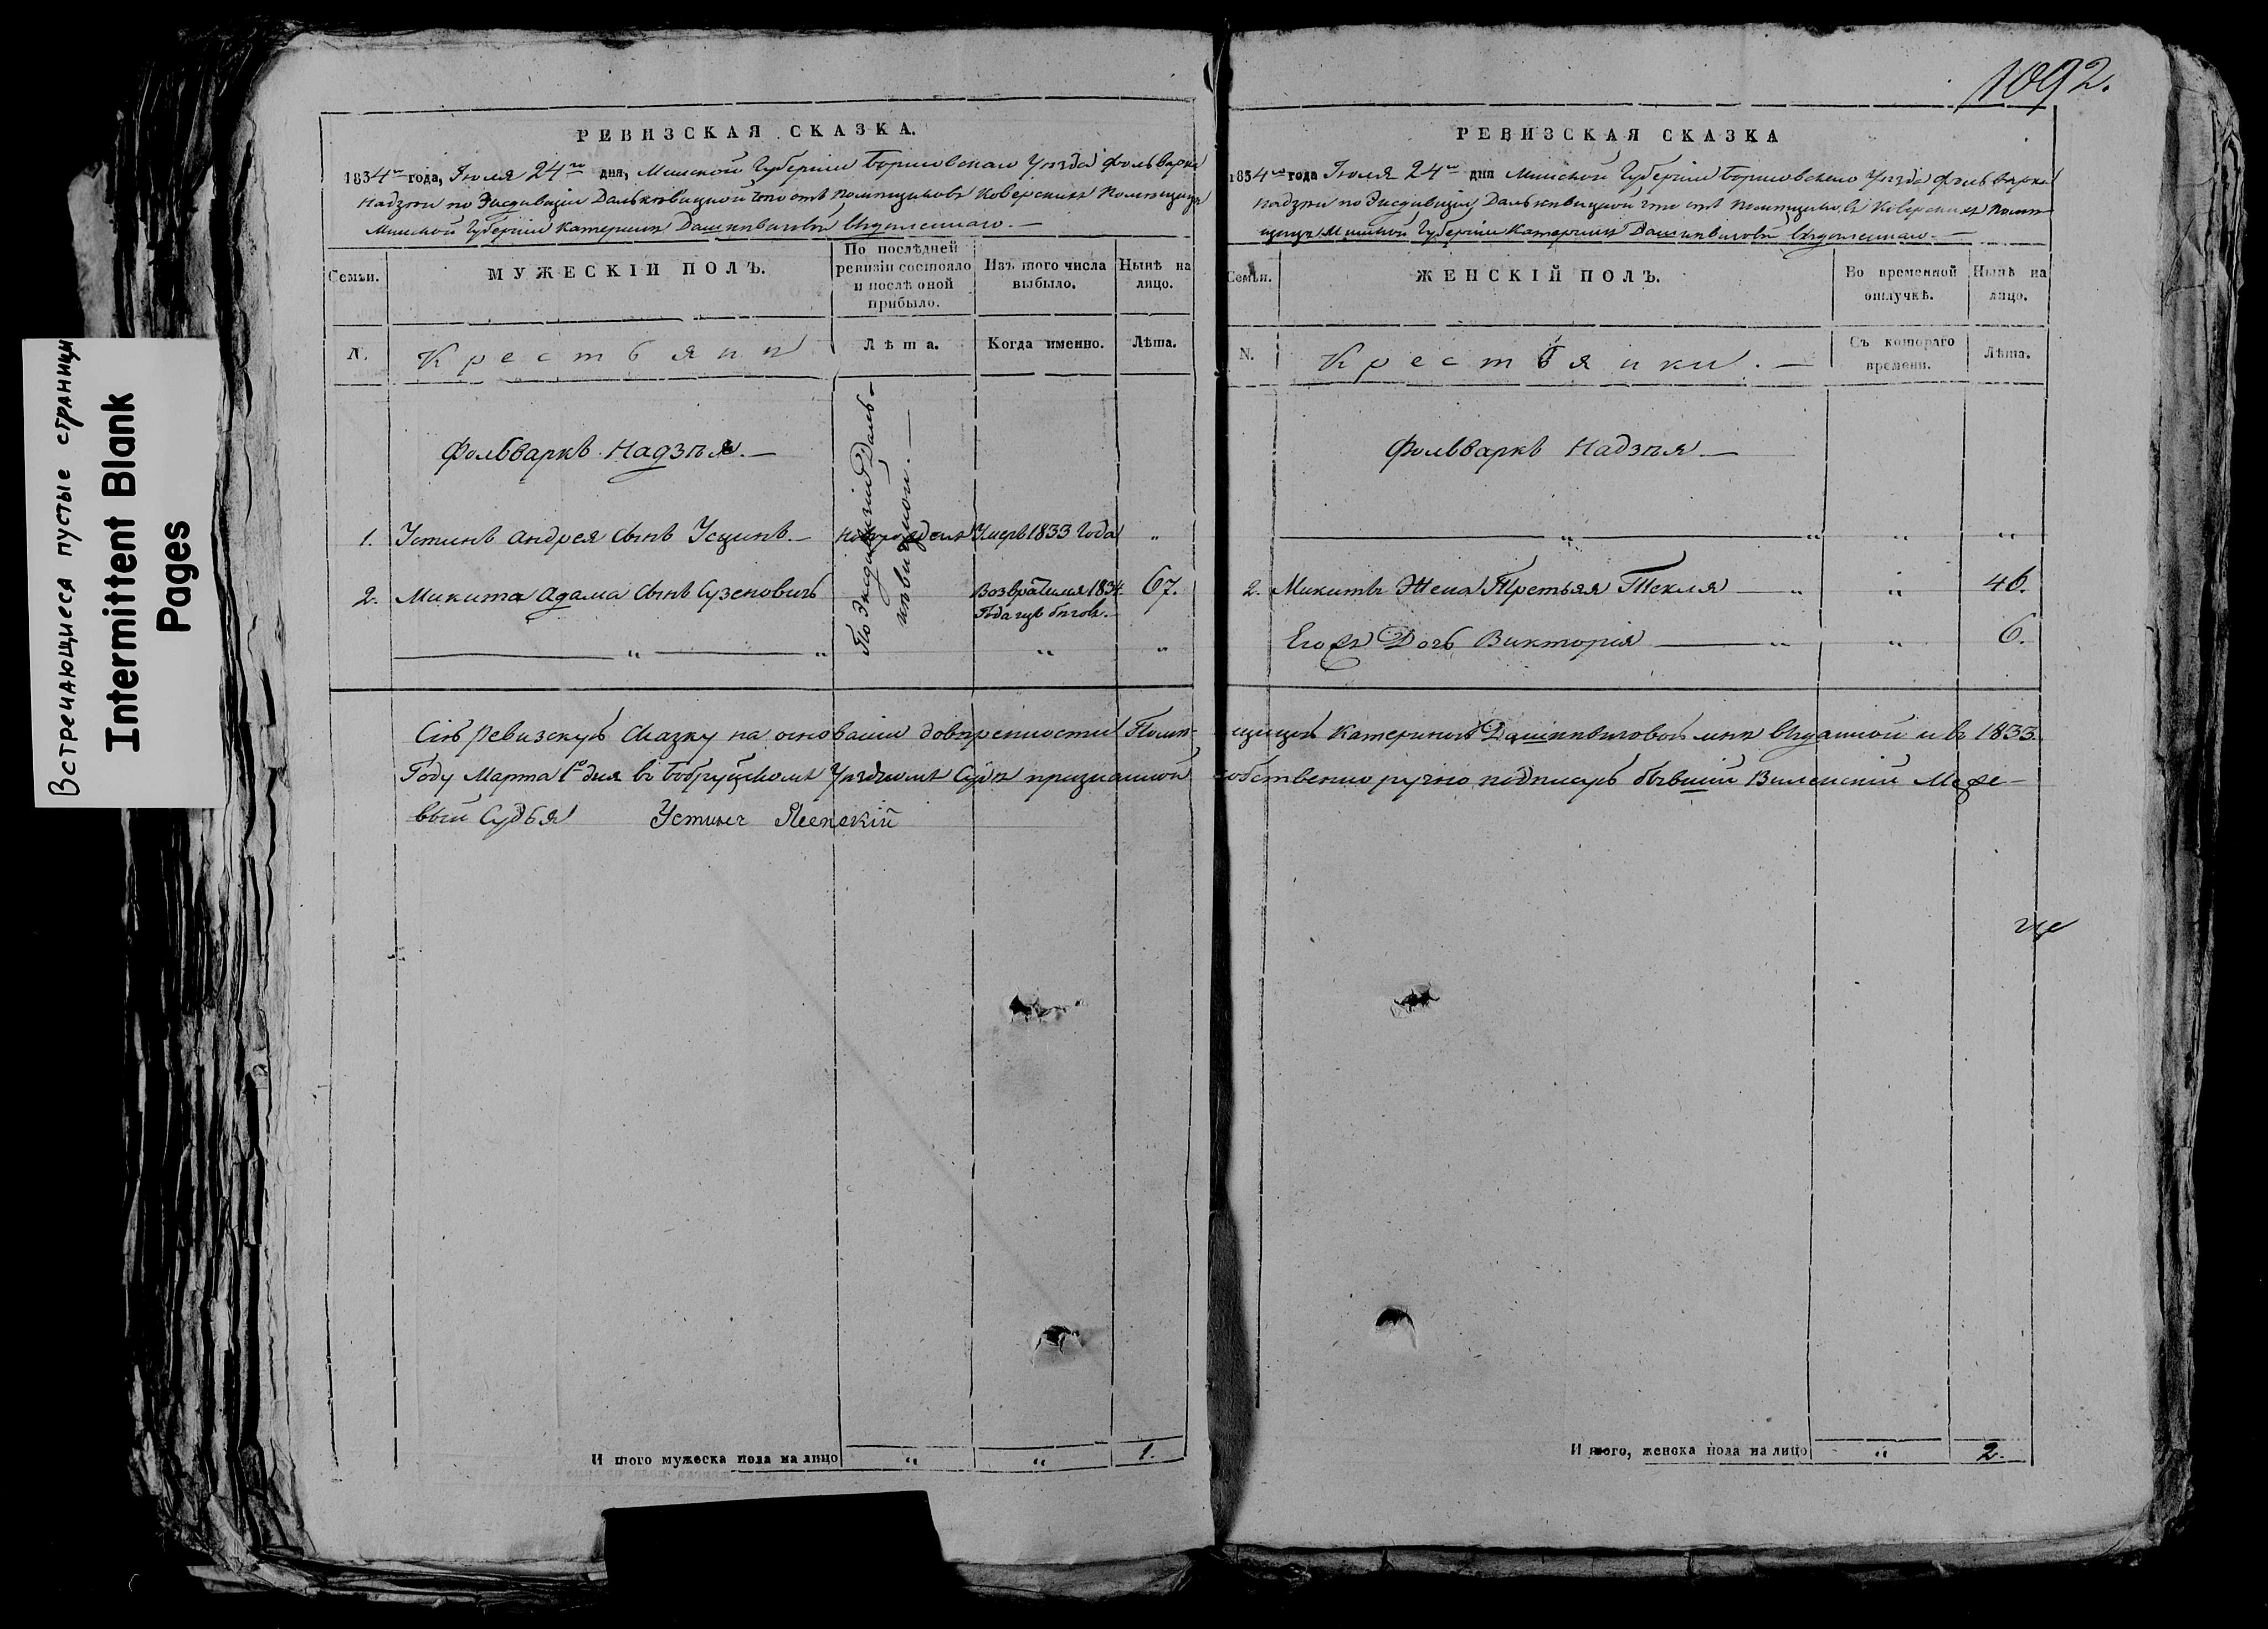 Встречающиеся пустые страницы
Intermittent Blank
Pages
1092.
РЕВИЗСКАЯ СКАЗКА.
1834го года, Іюля 24го дня, Минской Губерніи Борисовскаго Уѣзда фольварка
Надзѣи по Эксдивизіи Дальковицкой что отъ Помѣщиковъ Коверскихъ Помѣщицѣ
Минской Губерніи Катеринѣ Дашкѣвичовѣ выдѣленнаго. —
Семьи.
МУЖЕСКІЙ ПОЛЪ.
По послѣдней
ревизіи состояло
и послѣ оной
прибыло.
Изъ того числа
выбыло.
Нынѣ на
лицо.
N.
Крестьяни
Лѣта.
Когда именно.
Лѣта.
Фольваркъ Надзѣя. —
По Эксдивизіи Даль-
1. Устинъ Андрея сынъ Усцинъ. — Умеръ 1833 Года "
2. Микита Адама сынъ Сузеновичъ Возвратился 1834 67.
Года изъ бѣговъ. —
" " " "
Сію Ревизскую Сказку на основаніи довѣренности Помѣ-
Году Марта 1го дня въ Бобруйскомъ Уѣздномъ Судѣ признанной
вый Судья Устинъ
И того мужеска пола на лицо " " 1.
РЕВИЗСКАЯ СКАЗКА
1834го года Іюля 24го дня Минской Губерніи Борисовскаго Уѣзда фольварка
Надзѣи по Эксдивизіи Дальковицкой что отъ Помѣщиковъ Коверскихъ Помѣ-
щицѣ Минской Губерніи Катеринѣ Дашкѣвичовѣ выдѣленнаго. —
Семьи.
ЖЕНСКІЙ ПОЛЪ.
Во временной
отлучкѣ.
Нынѣ на
лицо.
N.
Крестьянки. —
Съ котораго
времени.
Лѣта.
Фольваркъ Надзѣя —
" " " "
2. Микиты Жена Третьяя Текля — " " 46.
Его же Дочь Викторія — " " 6.
щицей Катериной Дашкѣвичовой мнѣ выданной и въ 1833.
собственно ручно подписалъ бывшій Виленскій Меже-
И того, женска пола на лицо " 2.